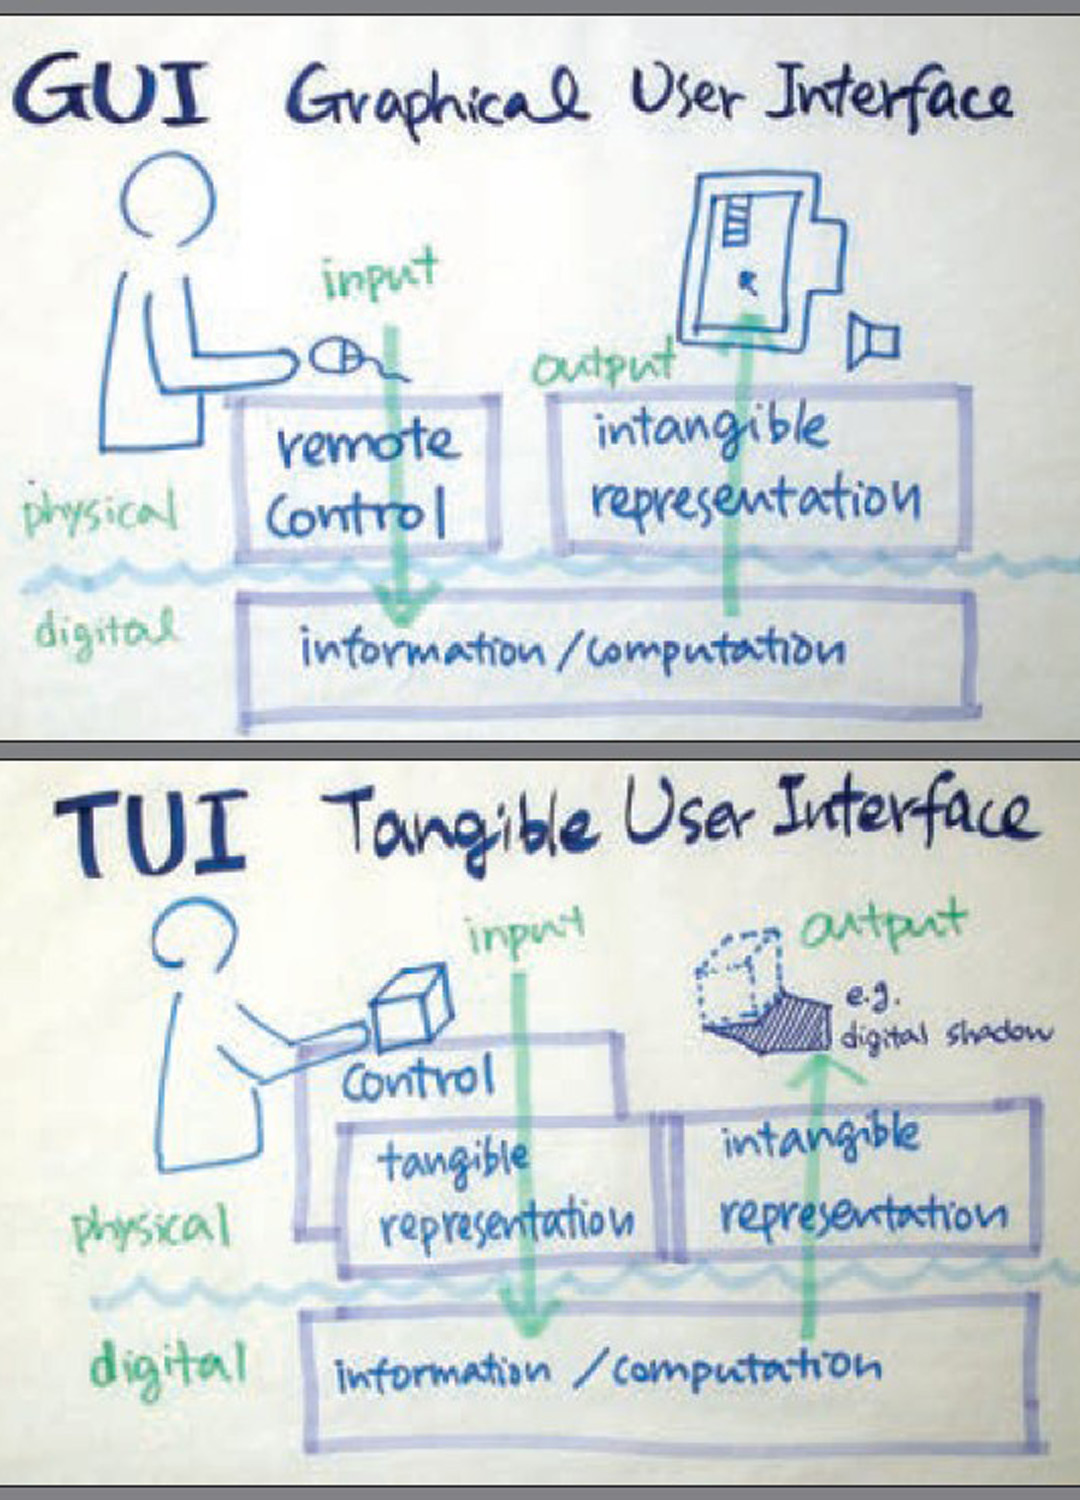 GUI Graphical User Interface
input
output
remote
control
intangible
representation
physical
digital
information/computation
TUI Tangible User Interface
input
output
e.g.
digital shadow
control
tangible
representation
intangible
representation
physical
digital
information/computation